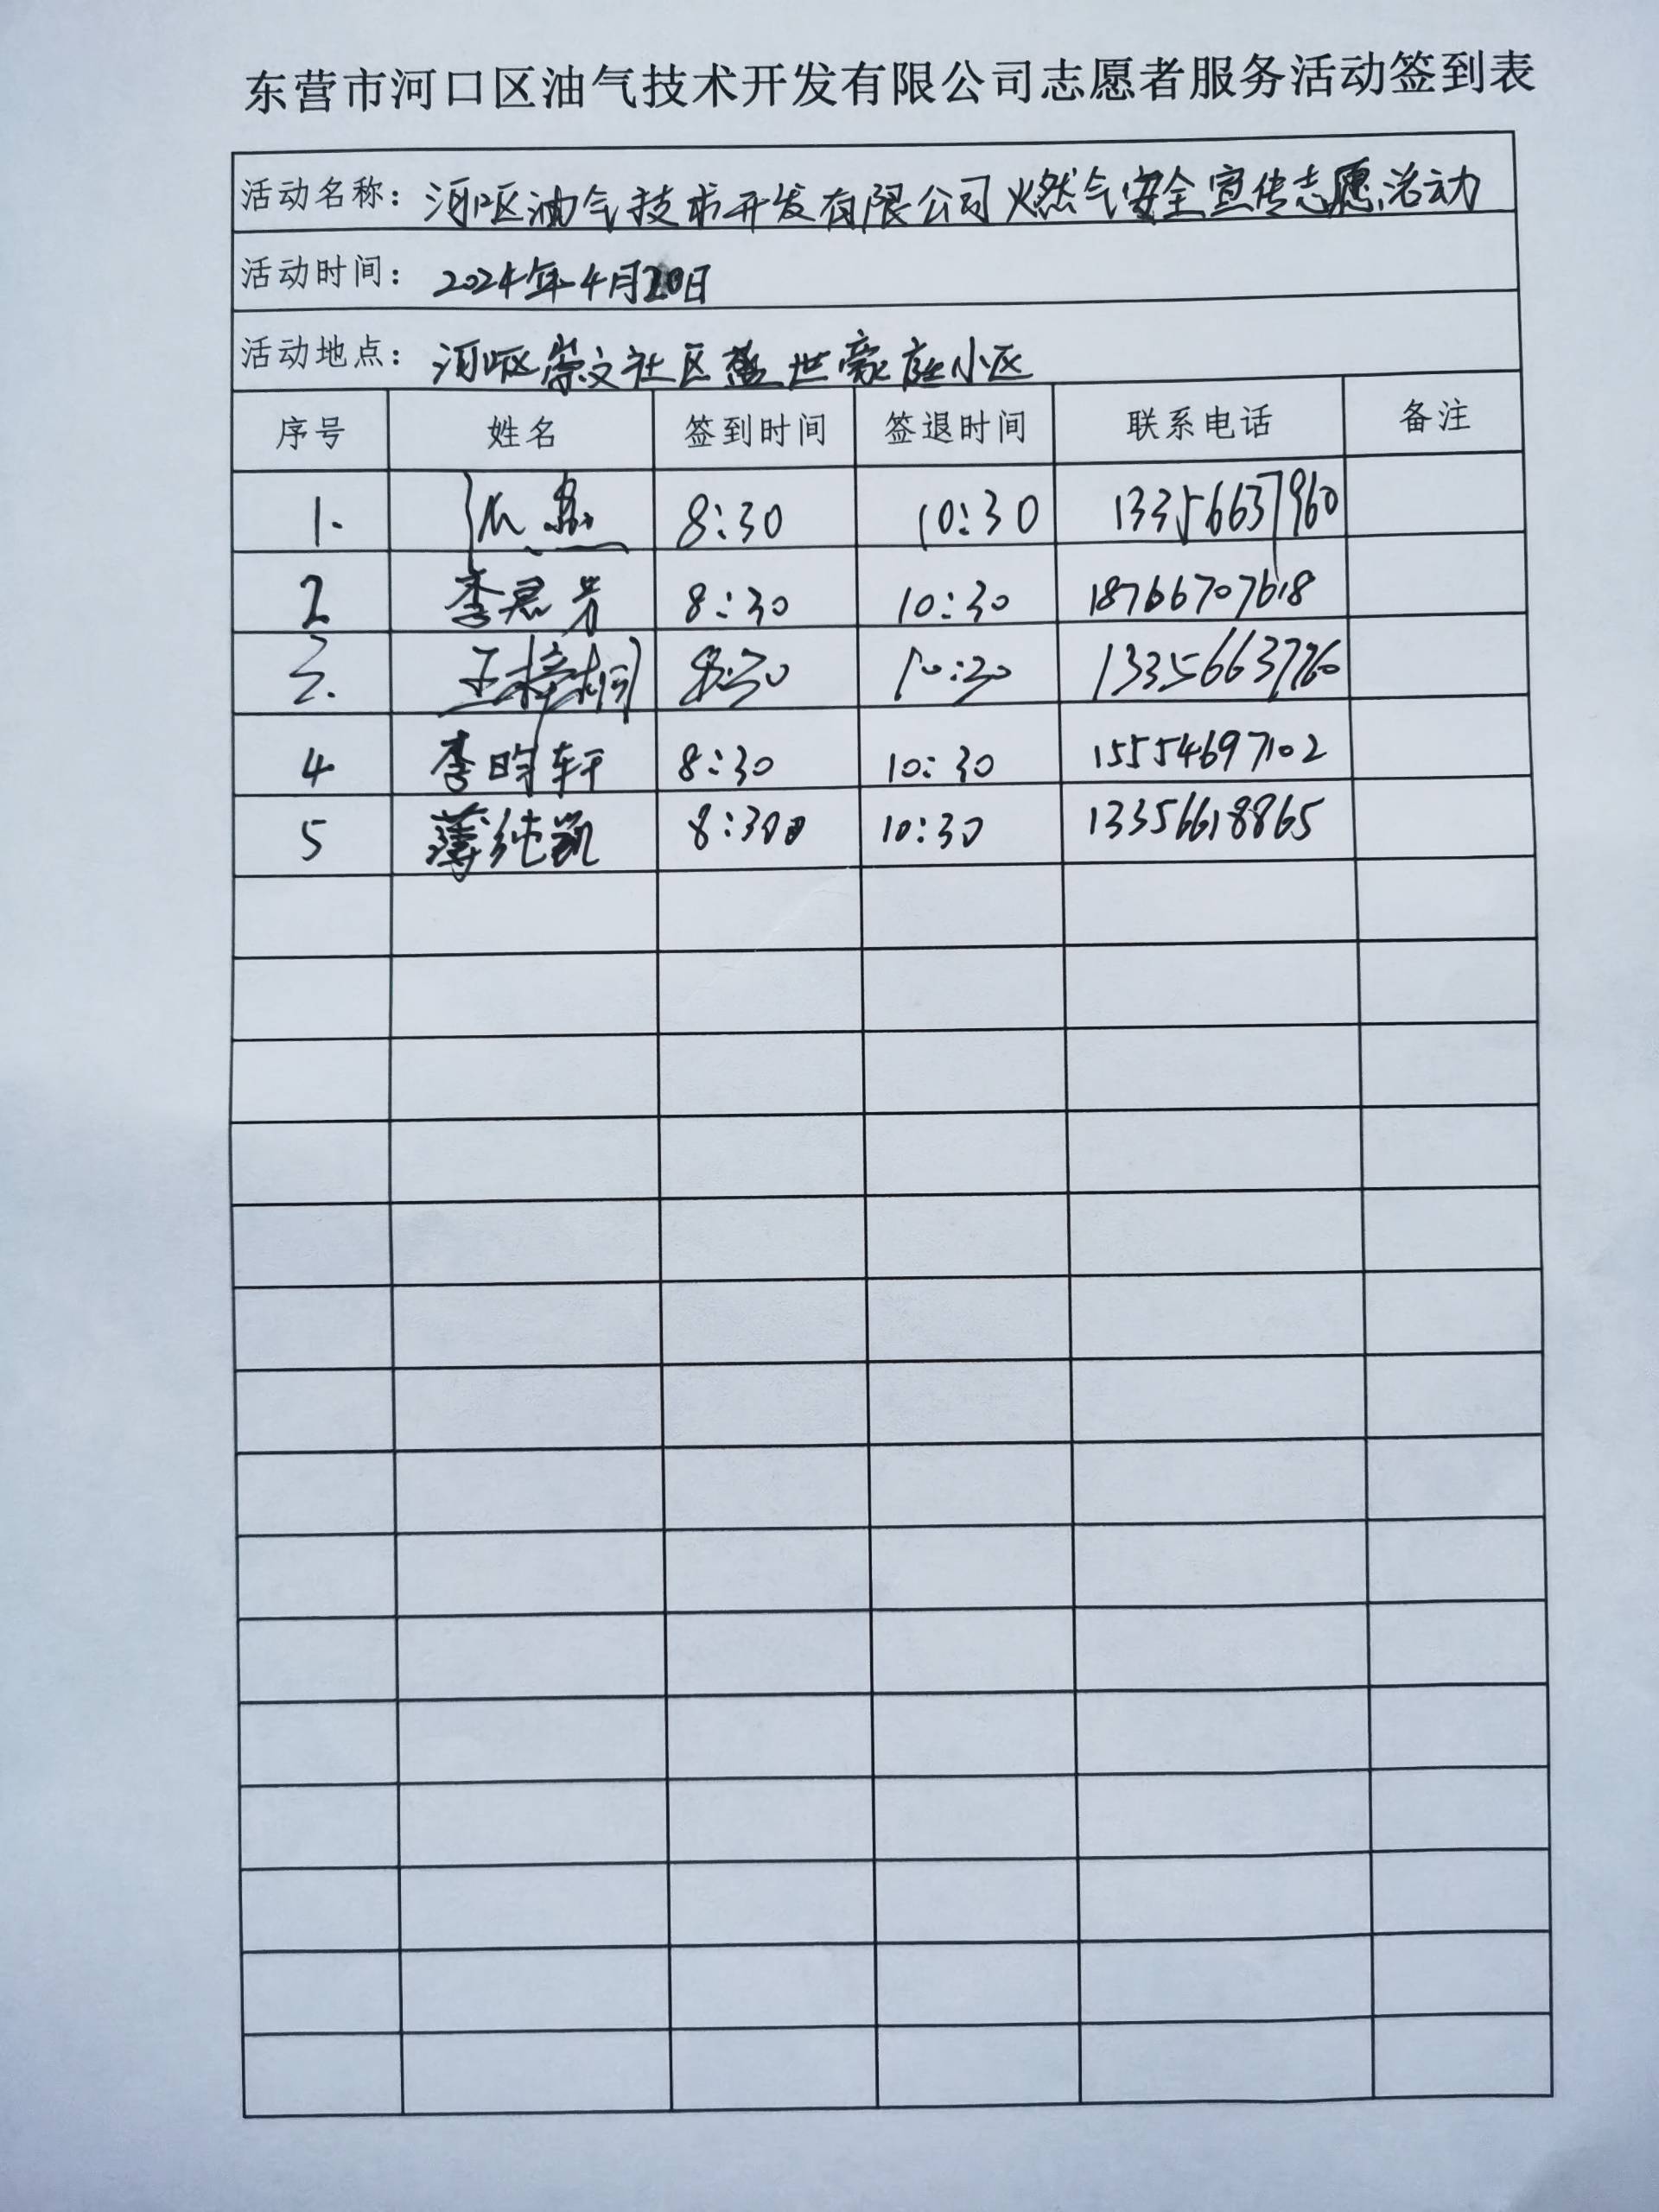 东营市河口区油气技术开发有限公司志愿者服务活动签到表
活动名称：河口区油气技术开发有限公司燃气安全宣传志愿活动
活动时间：2024年4月20日
活动地点：河口区崇文社区盛世豪庭小区
序号 姓名 签到时间 签退时间 联系电话 备注
1. 8:30 10:30 13356637960
2 李君芳 8:30 10:30 18766707618
3. 王梓桐 8:30 10:30 13356637760
4 李昀轩 8:30 10:30 15554697102
5 薄纯凯 8:30 10:30 13356618865